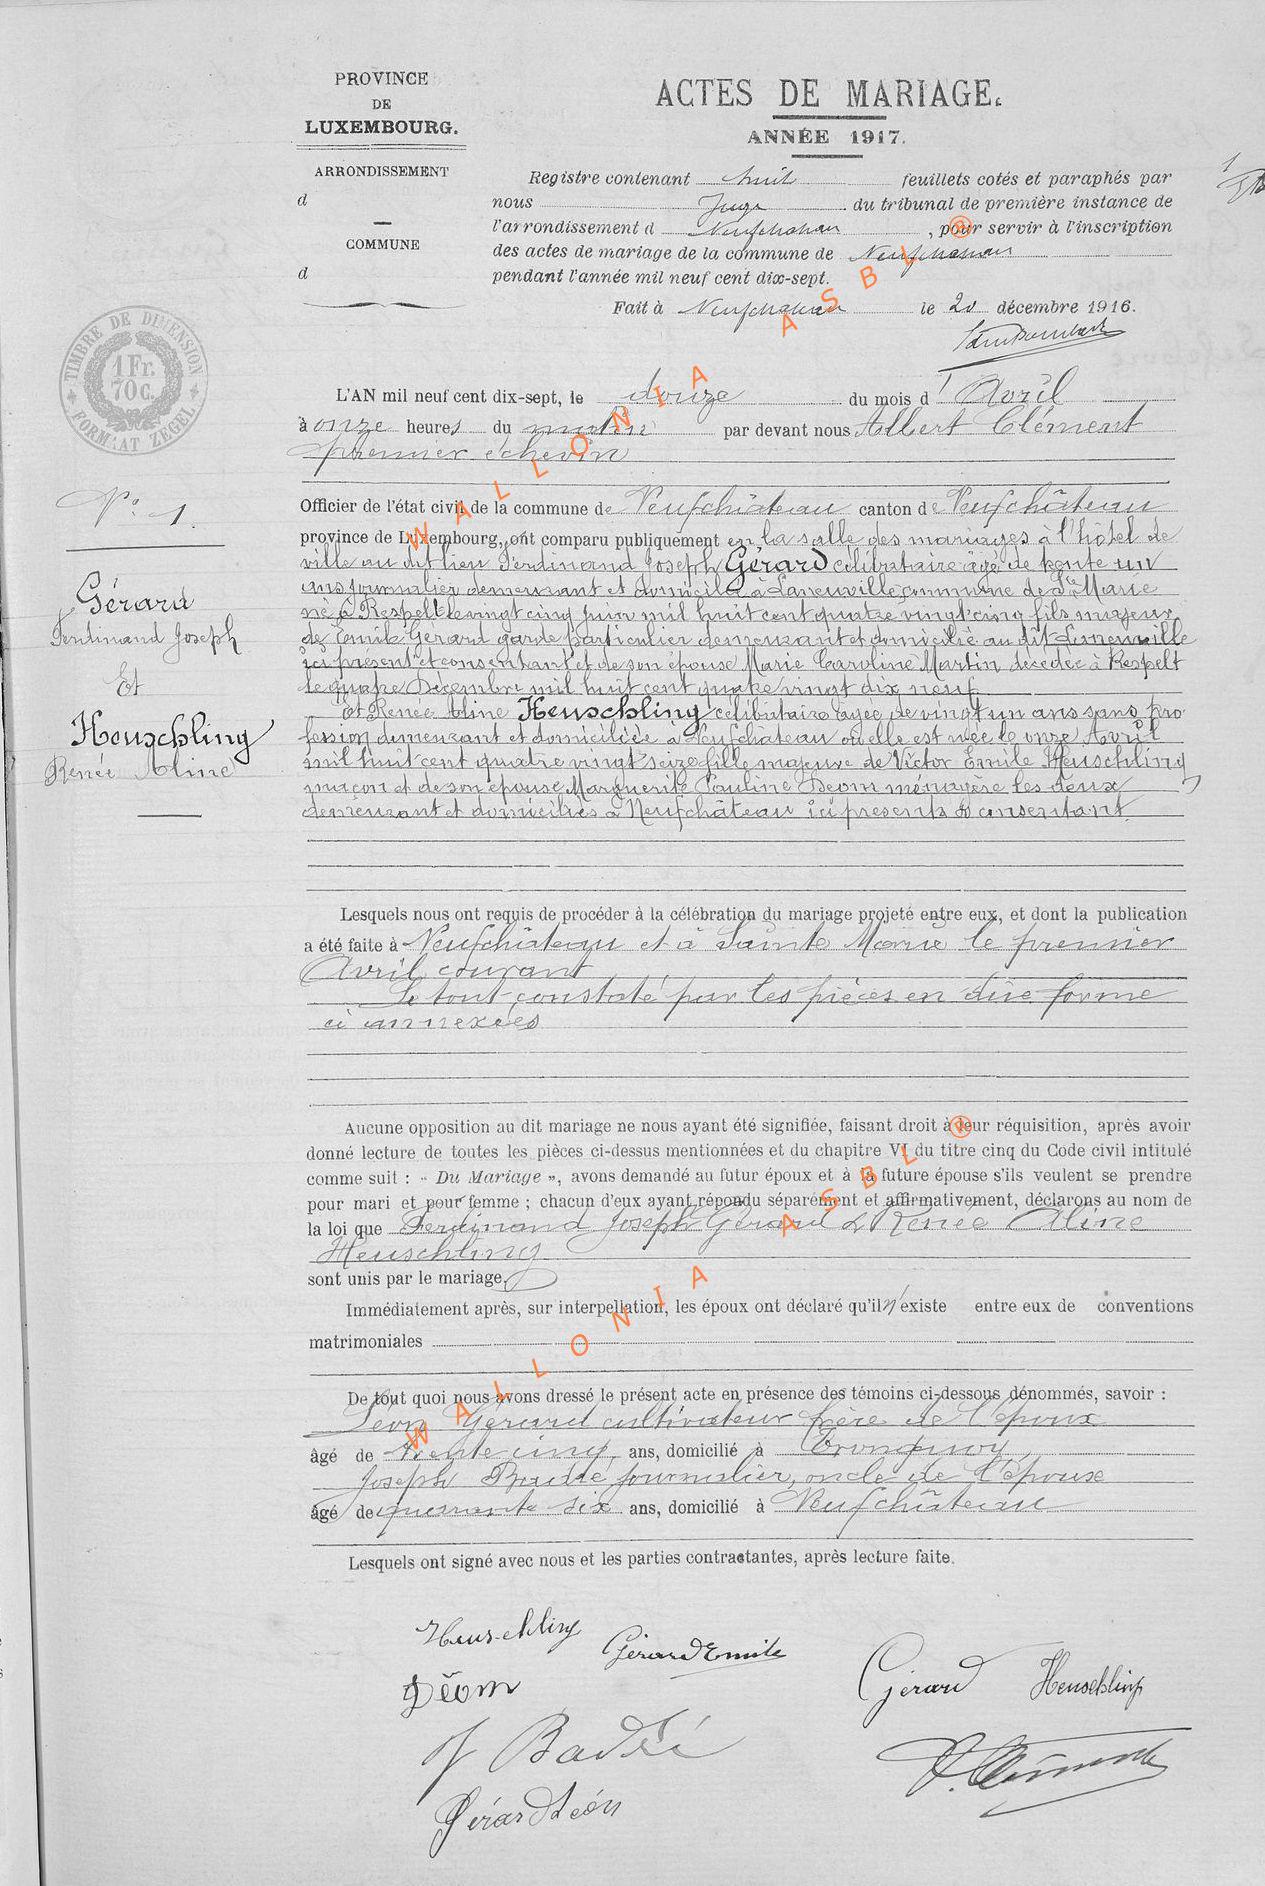 PROVINCE
DE
LUXEMBOURG.
ARRONDISSEMENT
d
COMMUNE
d
TIMBRE DE DIMENSION
1 Fr.
70 c.
FORMAAT ZEGEL
ACTES DE MARIAGE.
ANNÉE 1917.
Registre contenant huit feuillets cotés et paraphés par
nous Juge du tribunal de première instance de
l'arrondissement d Neufchateau, pour servir à l'inscription
des actes de mariage de la commune de Neufchateau
pendant l'année mil neuf cent dix-sept.
Fait à Neufchateau le 20 décembre 1916.
L'AN mil neuf cent dix-sept, le douze du mois d'Avril
à onze heures du matin par devant nous Albert Clément
premier échevin
N° 1.
Gérard
Ferdinand Joseph
Et
Heuschling
Renée Aline
Officier de l'état civil de la commune de Neufchâteau canton de Neufchâteau
province de Luxembourg, ont comparu publiquement en la salle des mariages à l'hôtel de
ville au dit lieu Ferdinand Joseph Gérard célibataire âgé de trente un
ans journalier demeurant et domicilié à Laneuville commune de Ste Marie
né à Respelt le vingt cinq juin mil huit cent quatre vingt cinq fils majeur
de Emile Gérard garde particulier demeurant et domicilié au dit Laneuville
ici présent et consentant et de son épouse Marie Caroline Martin décédée à Respelt
le quatre Décembre mil huit cent quatre vingt dix neuf
Et Renée Aline Heuschling célibataire âgée de vingt un ans sans pro
fession demeurant et domiciliée à Neufchateau où elle est née le onze Avril
mil huit cent quatre vingt seize fille majeure de Victor Emile Heuschling
maçon et de son épouse Marguerite Pauline Deom ménagère les deux
demeurant et domiciliés à Neufchâteau ici présents & consentant
Lesquels nous ont requis de procéder à la célébration du mariage projeté entre eux, et dont la publication
a été faite à Neufchâteau et à Sainte Marie le premier
Avril courant
Le tout constaté par les pièces en due forme
ci annexées
Aucune opposition au dit mariage ne nous ayant été signifiée, faisant droit à leur réquisition, après avoir
donné lecture de toutes les pièces ci-dessus mentionnées et du chapitre VI du titre cinq du Code civil intitulé
comme suit : « Du Mariage », avons demandé au futur époux et à la future épouse s'ils veulent se prendre
pour mari et pour femme ; chacun d'eux ayant répondu séparément et affirmativement, déclarons au nom de
la loi que Ferdinand Joseph Gérard & Renée Aline
Heuschling
sont unis par le mariage.
Immédiatement après, sur interpellation, les époux ont déclaré qu'il n'existe entre eux de conventions
matrimoniales
De tout quoi nous avons dressé le présent acte en présence des témoins ci-dessous dénommés, savoir :
Léon Gérard cultivateur frère de l'époux
âgé de trente cinq ans, domicilié à Tronquoy
Joseph Badré journalier, oncle de l'époux
âgé de quarante six ans, domicilié à Neufchâteau
Lesquels ont signé avec nous et les parties contractantes, après lecture faite.
Heuschling
Gérard Emile
Gérard
Heuschling
Déom
J Badré
A. Clément
Gérard Léon
WALLONIA ASBL ®
WALLONIA ASBL ®